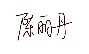 陈丽丹